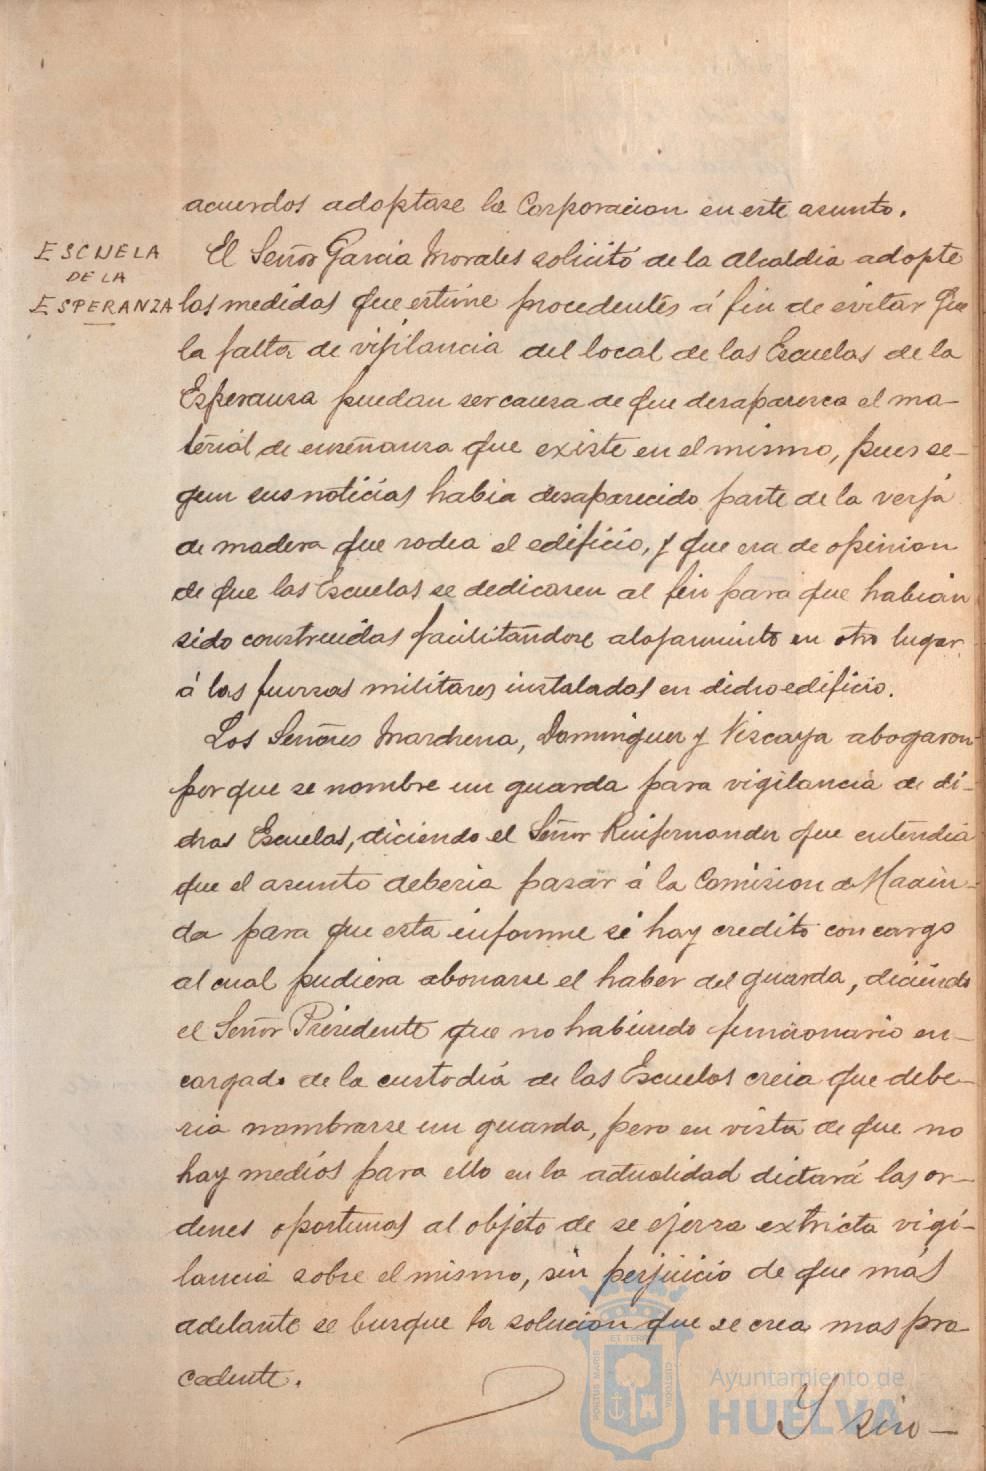 acuerdos adoptase la Corporacion en este asunto.
ESCUELA
DE LA
ESPERANZA
El Señor Garcia Morales solicitó de la Alcaldia adopte
las medidas que estime procedentes á fin de evitar que
la falta de vijilancia del local de las Escuelas de la
Esperansa puedan ser causa de que desaparesca el ma-
terial de enseñansa que existe en el mismo, pues se-
gun sus noticias habia desaparecido parte de la verja
de madera que rodea el edificio, y que era de opinion
de que las Escuelas se dedicasen al fin para que habian
sido construidas facilitandose alojamiento en otro lugar
á las fuersas militares instaladas en dicho edificio.
Los Señores Marchena, Dominguez y Viscaya abogaron
porque se nombre un guarda para vigilancia de di-
chas Escuelas, diciendo el Señor Ruifernandez que entendia
que el asunto deberia pasar á la Comision de Hacien-
da para que esta informe si hay credito con cargo
al cual pudiera abonarse el haber del guarda, diciendo
el Señor Presidente que no habiendo funcionario en-
cargado de la custodia de las Escuelas creia que debe-
ria nombrarse un guarda, pero en vista de que no
hay medios para ello en la actualidad dictará las or-
denes oportunas al objeto de se ejersa extricta vigi-
lancia sobre el mismo, sin perjuicio de que más
adelante se busque la solucion que se crea mas pro
cedente.
Y sin—
PORTUS MARIS
ET TERRE
CUSTODIA
Ayuntamiento de
HUELVA